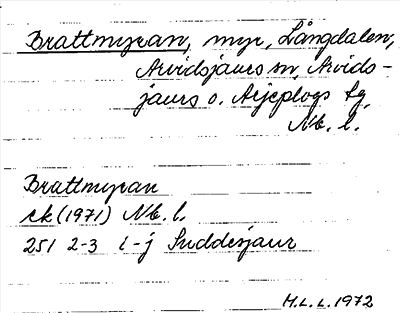 Brattmyran, myr, Långdalen,
Arvidsjaurs sn, Arvids-
jaurs o. Arjeplogs tg,
Nb. l.
Brattmyran
ek (1971) Nb. l.
251 2-3 i-j Suddesjaur
H.L.L. 1972